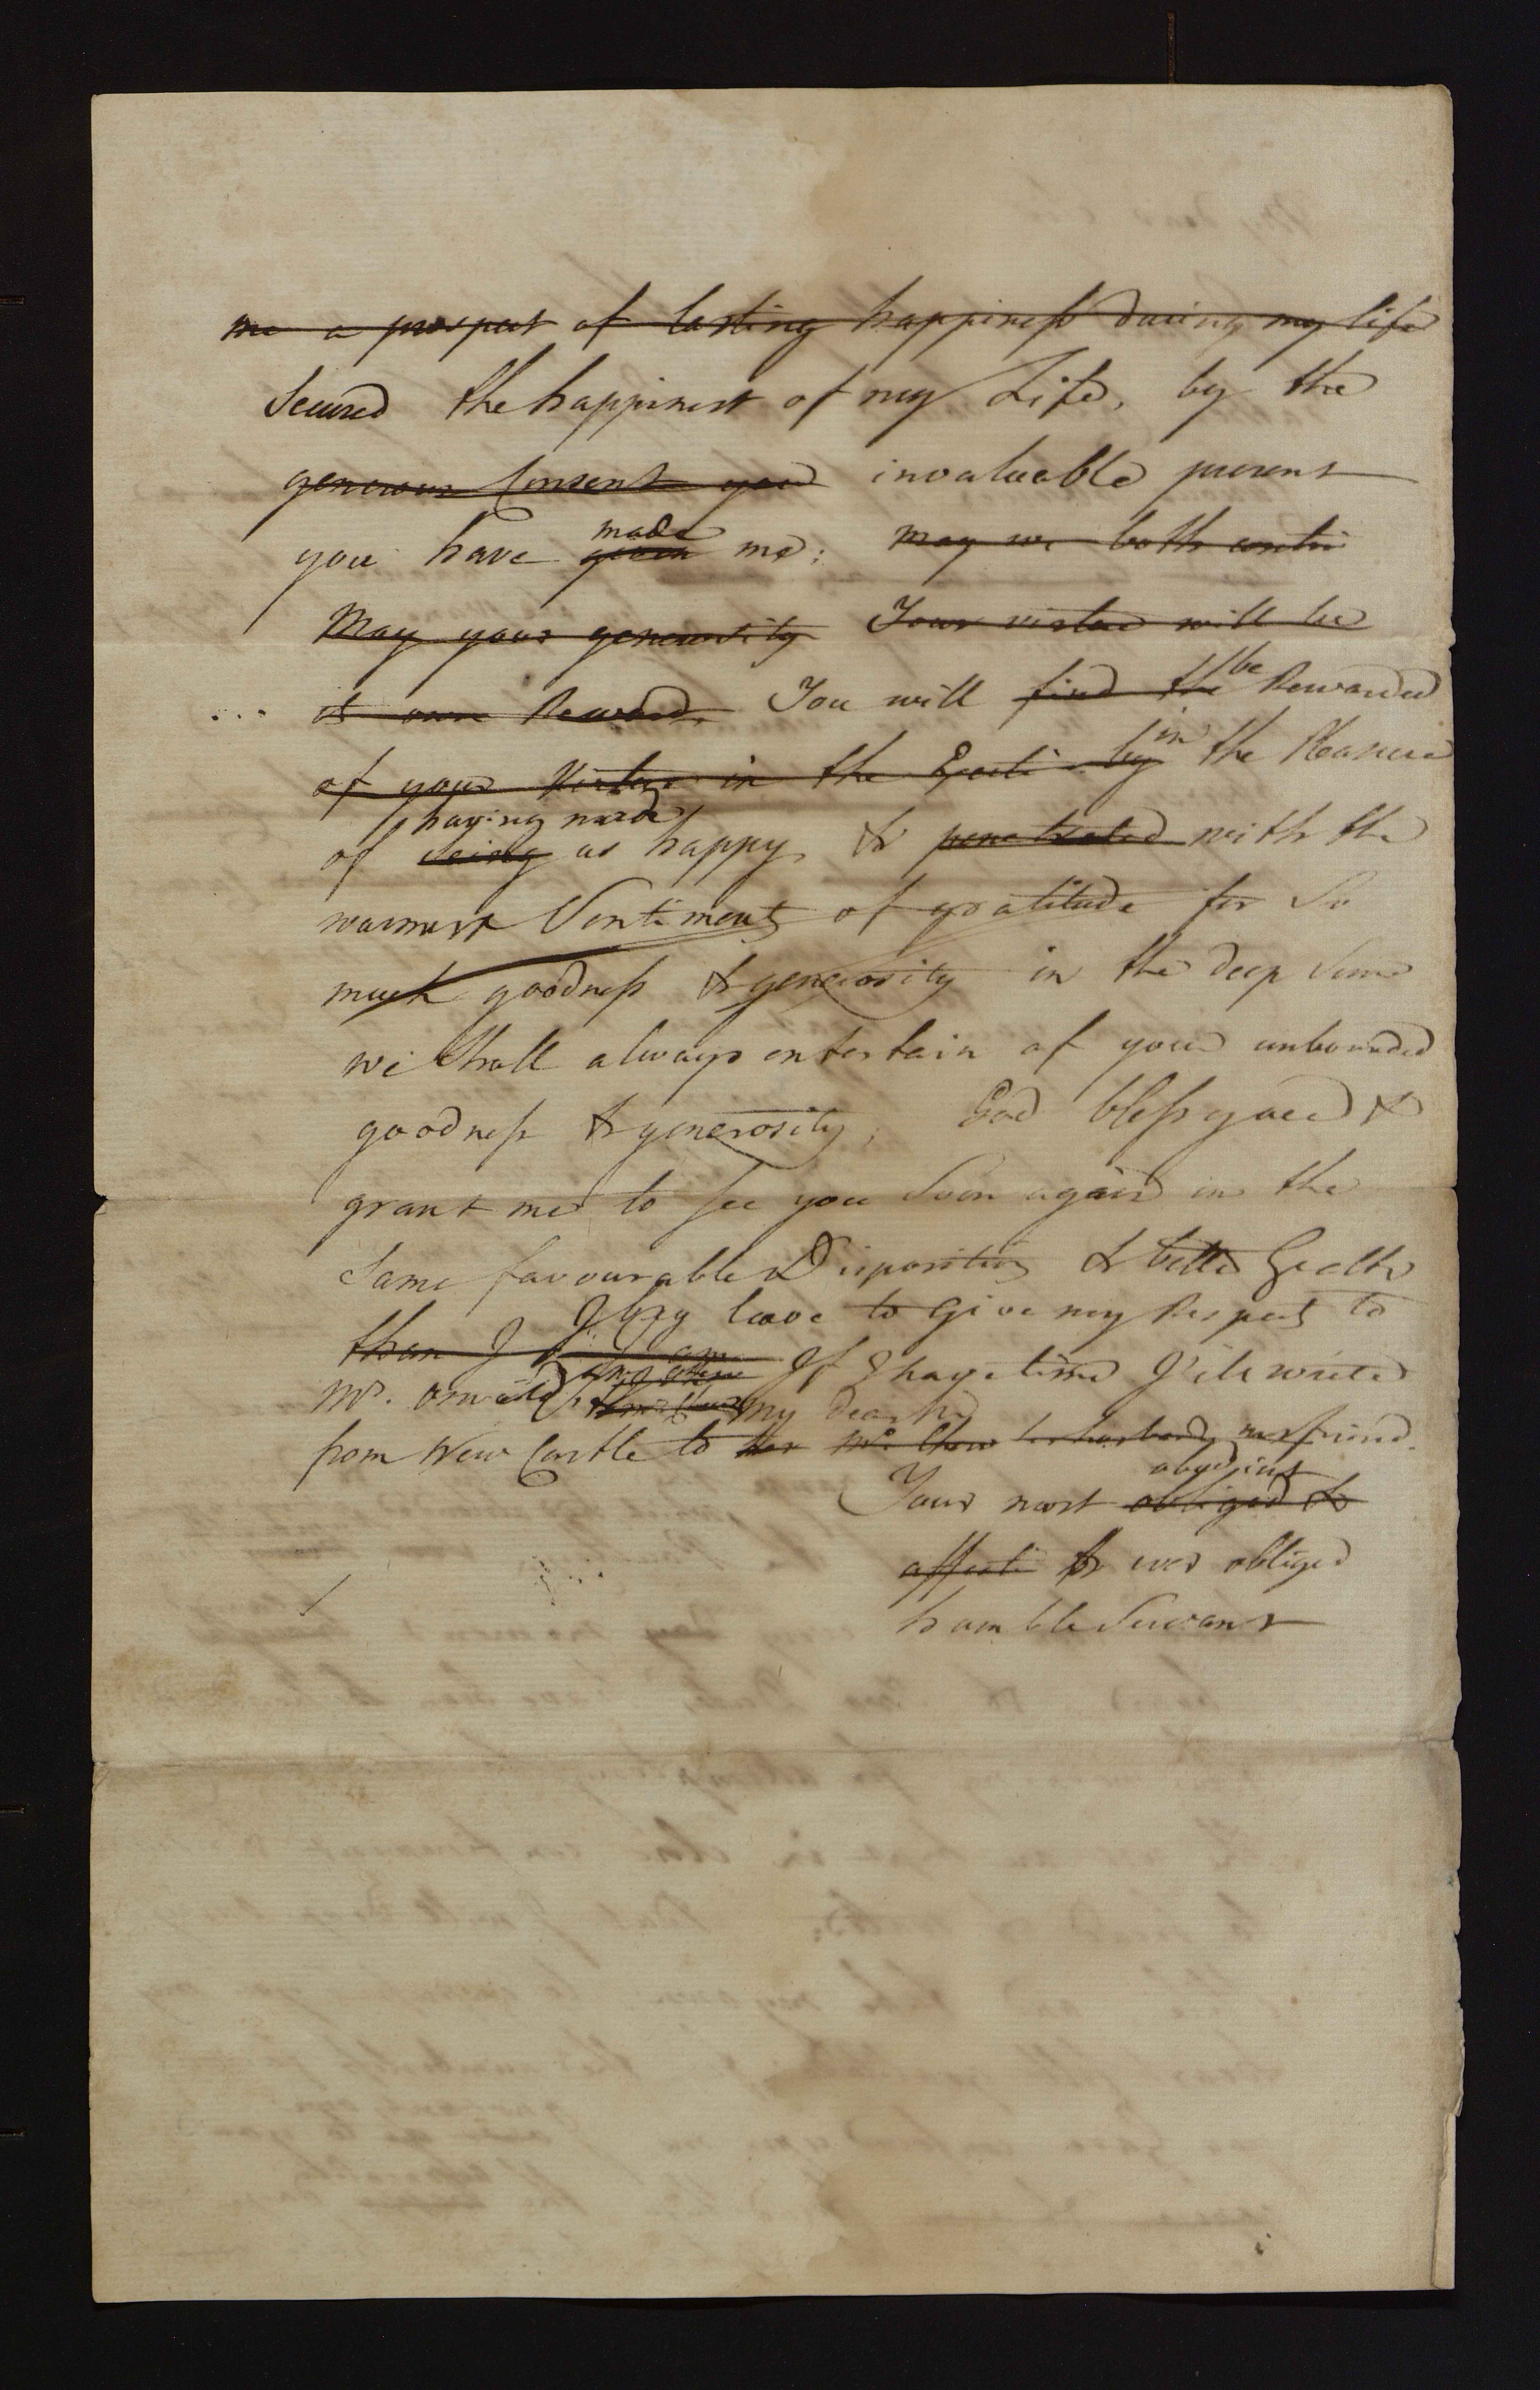 me a prospect of lasting happiness during my life
Secured the happiness of my Life, by the
generous Consent your invaluable present
made
you have given me; may we both contin
May your generosity Your virtue will be
it own Reward. You will find the be Rewarded
of your Virtue in the by in the Pleasure
having made
of seing us happy, & penetrated with the
warmest Sentiments of gratitude for So
much goodness & generosity in the deep Sense
we Shall always entertain of your unbounded
goodness & generosity; God bless you &
grant me to see you Soon again in the
Same favourable Disposition & better Health
I beg leave to Give my Respects to
than I am If I have time I'ele write
Mr. my dear
from New Castle to her Mr. Chew her husband my friend.
obedient
Your most obliged &
affecti & ever obliged
humble Servant